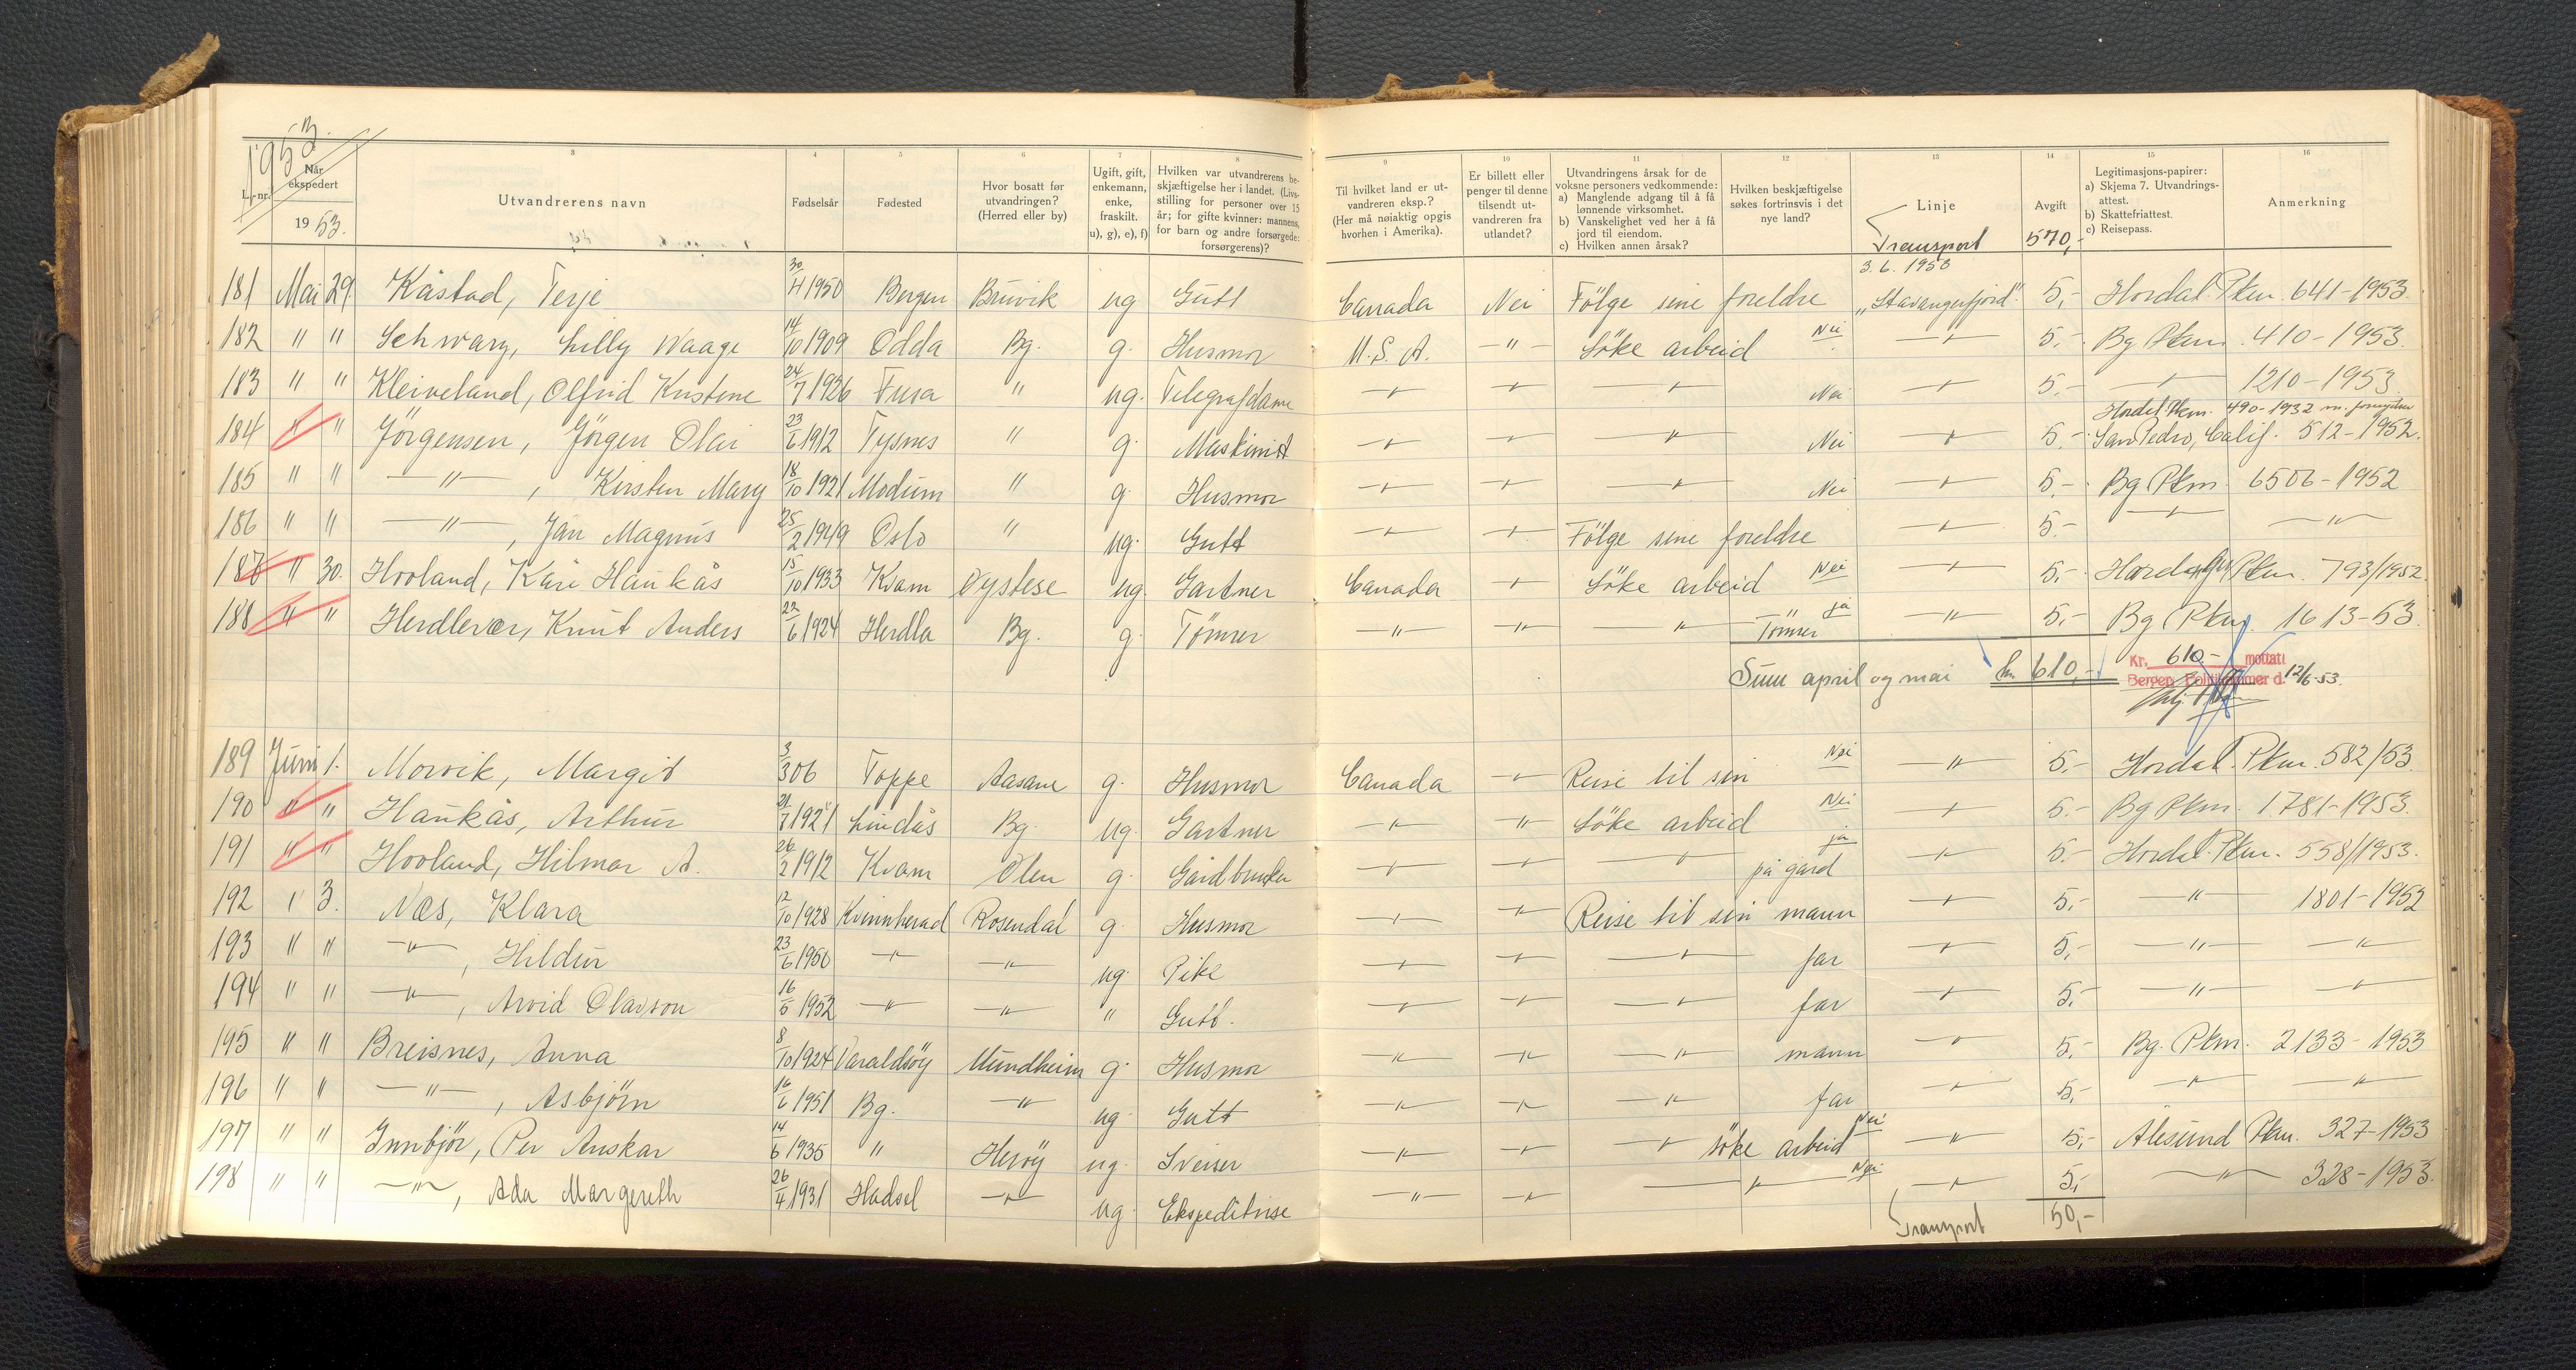 1953.
L.-nr. | Når ekspedert 1953. | 3 Utvandrerens navn | 4 Fødselsår | 5 Fødested | 6 Hvor bosatt før utvandringen? (Herred eller by) | 7 Ugift, gift, enkemann, enke, fraskilt. u), g), e), f) | 8 Hvilken var utvandrerens beskjæftigelse her i landet. (Livsstilling for personer over 15 år; for gifte kvinner: mannens, for barn og andre forsørgede: forsørgerens)? | 9 Til hvilket land er utvandreren eksp.? (Her må nøiaktig opgis hvorhen i Amerika). | 10 Er billett eller penger til denne tilsendt utvandreren fra utlandet? | 11 Utvandringens årsak for de voksne personers vedkommende: a) Manglende adgang til å få lønnende virksomhet. b) Vanskelighet ved her å få jord til eiendom. c) Hvilken annen årsak? | 12 Hvilken beskjæftigelse søkes fortrinsvis i det nye land? | 13 Linje | 14 Avgift | 15 Legitimasjons-papirer: a) Skjema 7. Utvandringsattest. b) Skattefriattest. c) Reisepass. | 16 Anmerkning
Transport 570,-
3.6.1953
181 Mai 29 Kåstad, Terje 30/4 1950 Bergen Bruvik ug Gutt Canada Nei Følge sine foreldre „Stavangerfjord" 5,- Hordal. Pkm. 641-1953
182 " " Schwarz, Lilly Waage 14/10 1909 Odda Bg. g. Husmor U.S.A. -"- Söke arbeid Nei -"- 5,- Bg Pkm. 410-1953.
183 " " Kleiveland, Olfrid Kristine 24/7 1926 Fusa " ug. Telegrafdame -"- -"- -"- Nei -"- 5,- -"- 1210-1953
Hordal. Pkm. 490-1932 m. fornyelse
184 " " Jörgensen, Jörgen Olai 23/6 1912 Tysnes " g. Maskinist -"- -"- -"- Nei -"- 5,- San Pedro, Calif. 512-1952.
185 " " -"-, Kirsten Mary 18/10 1921 Modum " g. Husmor -"- -"- -"- Nei -"- 5,- Bg Pkm 6506-1952
186 " " -"-, Jan Magnus 25/2 1949 Oslo " ug. Gutt -"- -"- Følge sine foreldre -"- 5,- -"- -"-
187 " 30. Hovland, Kåre Haukås 15/10 1933 Kvam Øystese ug Gartner Canada -"- Söke arbeid Nei -"- 5,- Hardanger Pkm. 793/1952
188 " " Herdlevær, Knut Anders 22/6 1924 Herdla Bg. g. Tömrer -"- -"- -"- -"- ja Tömrer -"- 5,- Bg Pkm. 1613-53
Sum april og mai kr 610,- Kr. 610.- mottatt
Bergen Politikammer d. 12/6-53.
189 Juni 1. Morvik, Margit 3/3 06 Toppe Aasane g. Husmor Canada -"- Reise til sin Nei -"- 5,- Hordal. Pkm. 582/53
190 " " Haukås, Arthur 21/7 1921 Lindås Bg. ug. Gartner -"- -"- Söke arbeid Nei -"- 5.- Bg Pkm. 1781-1953.
191 " " Hovland, Hilmar A. 26/2 1912 Kvam Ølen g. Gårdbruker -"- -"- -"- ja på gård -"- 5.- Hordal. Pkm. 558/1953.
192 " 3. Næs, Klara 12/10 1928 Kvinnherad Rosendal g. Husmor -"- -"- Reise til sin mann -"- 5,- -"- 1801-1952
193 " " -"-, Hildur 23/6 1950 -"- -"- ug. Pike -"- -"- -"- far -"- 5,- -"- -"-
194 " " -"-, Arvid Olavson 16/5 1952 -"- -"- " Gutt. -"- -"- -"- far -"- 5,- -"- -"-
195 " " Breisnes, Anna 8/10 1924 Varaldsöy Mundheim g. Husmor -"- -"- -"- mann -"- 5,- Bg. Pkm. 2133-1953
196 " " -"-, Asbjörn 16/6 1951 Bg. -"- ug Gutt -"- -"- -"- far -"- 5,- -"- -"-
197 " " Innbjör, Per Anskar 14/6 1935 " Heröy ug. Sveiser -"- -"- -"- söke arbeid Nei -"- 5,- Ålesund Pkm. 327-1953
198 " " -"-, Ada Margereth 26/4 1931 Hadsel -"- ug. Ekspeditrise -"- -"- -"- Nei -"- 5,- -"- 328-1953.
Transport 50,-